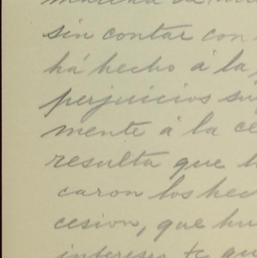 sin contar con
há hecho á la
perjuicios su
mente á la ce
resulta que l
caron los hec
cesion, que hu
intereses te qu